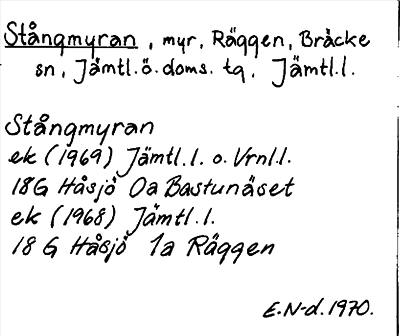 Stångmyran, myr, Räggen, Bräcke
sn, Jämtl.ö.doms. tg, Jämtl.l.
Stångmyran
ek (1969) Jämtl.l. o. Vrnl.l.
18G Håsjö 0a Bastunäset
ek (1968) Jämtl.l.
18 G Håsjö 1a Räggen
E.N-d. 1970.